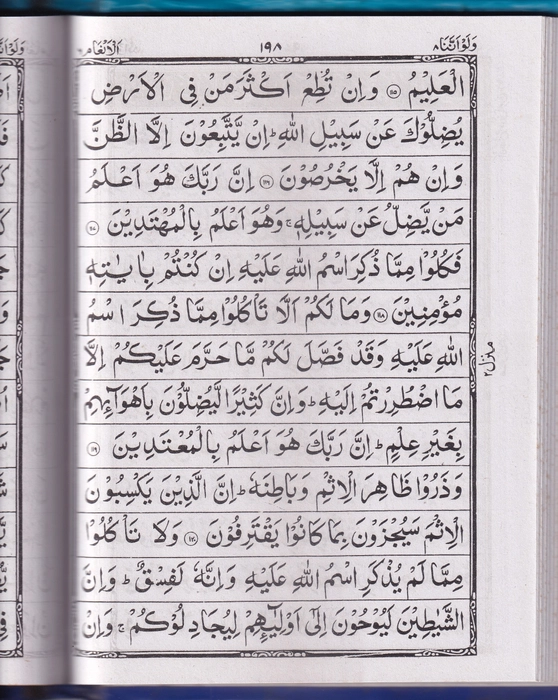 ولواننا ۸ ۱۹۸ الانعام ۶
الْعَلِيْمُ ﴿۱۱۵﴾ وَاِنْ تُطِعْ اَكْثَرَ مَنْ فِى الْاَرْضِ
يُضِلُّوْكَ عَنْ سَبِيْلِ اللهِ ؕ اِنْ يَّتَّبِعُوْنَ اِلَّا الظَّنَّ
وَاِنْ هُمْ اِلَّا يَخْرُصُوْنَ ﴿۱۱۶﴾ اِنَّ رَبَّكَ هُوَ اَعْلَمُ
مَنْ يَّضِلُّ عَنْ سَبِيْلِهٖ ۚ وَهُوَ اَعْلَمُ بِالْمُهْتَدِيْنَ ﴿۱۱۷﴾
فَكُلُوْا مِمَّا ذُكِرَ اسْمُ اللهِ عَلَيْهِ اِنْ كُنْتُمْ بِاٰيٰتِهٖ
مُؤْمِنِيْنَ ﴿۱۱۸﴾ وَمَا لَكُمْ اَلَّا تَاْكُلُوْا مِمَّا ذُكِرَ اسْمُ
اللهِ عَلَيْهِ وَقَدْ فَصَّلَ لَكُمْ مَّا حَرَّمَ عَلَيْكُمْ اِلَّا
مَا اضْطُرِرْتُمْ اِلَيْهِ ؕ وَاِنَّ كَثِيْرًا لَّيُضِلُّوْنَ بِاَهْوَآئِهِمْ
بِغَيْرِ عِلْمٍ ؕ اِنَّ رَبَّكَ هُوَ اَعْلَمُ بِالْمُعْتَدِيْنَ ﴿۱۱۹﴾
وَذَرُوْا ظَاهِرَ الْاِثْمِ وَبَاطِنَهٗ ؕ اِنَّ الَّذِيْنَ يَكْسِبُوْنَ
الْاِثْمَ سَيُجْزَوْنَ بِمَا كَانُوْا يَقْتَرِفُوْنَ ﴿۱۲۰﴾ وَلَا تَاْكُلُوْا
مِمَّا لَمْ يُذْكَرِ اسْمُ اللهِ عَلَيْهِ وَاِنَّهٗ لَفِسْقٌ ؕ وَاِنَّ
الشَّيٰطِيْنَ لَيُوْحُوْنَ اِلٰٓى اَوْلِيٰٓئِهِمْ لِيُجَادِلُوْكُمْ ۚ وَاِنْ
منزل ۲